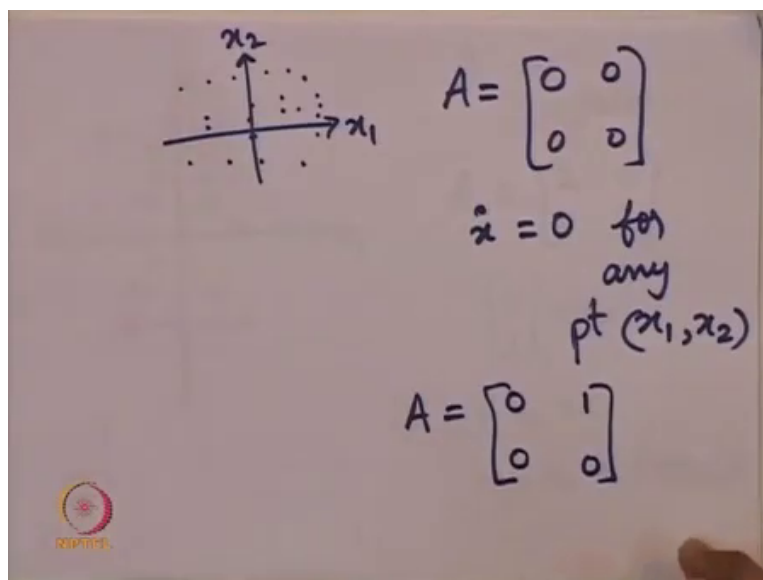 x₂
x₁
A = [0 0
0 0]
ẋ = 0 for
any
pt (x₁, x₂)
A = [0 1
0 0]
NPTEL